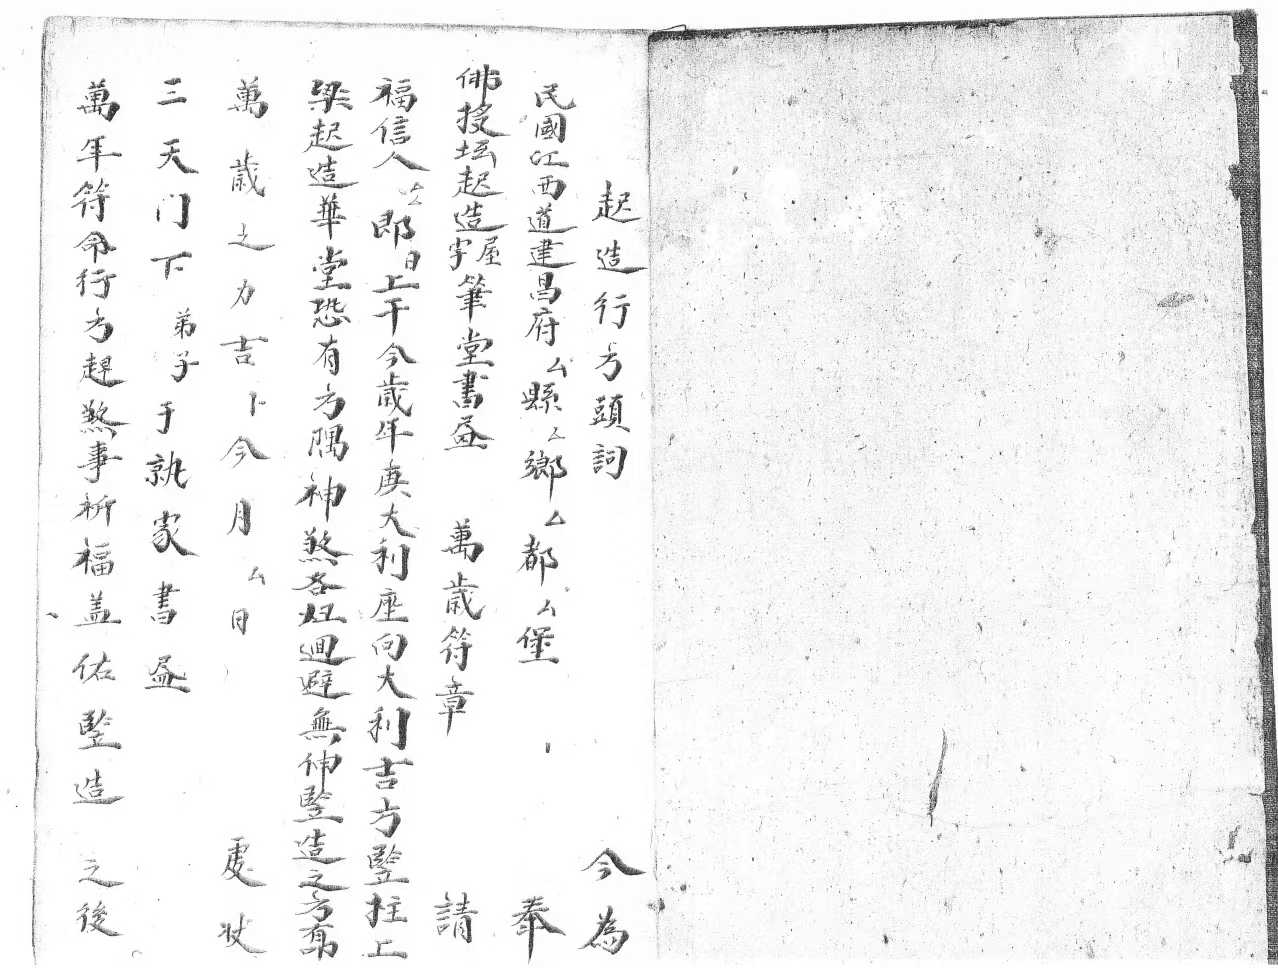 起造行方頭詞 今為
民國江西道建昌府厶縣厶鄉厶都厶堡 奉
佛授坛起造屋宇筆堂書 萬歲符章 請
福信人厶即日上干今歲年庚大利座向大利吉方豎柱上
梁起造華堂恐有方隅神煞各 迴避無伸豎造之方
萬歲之力吉卜今月厶日 處状
三天门下弟子于執家書
萬年符命行方趕煞事祈福盖佑豎造之後